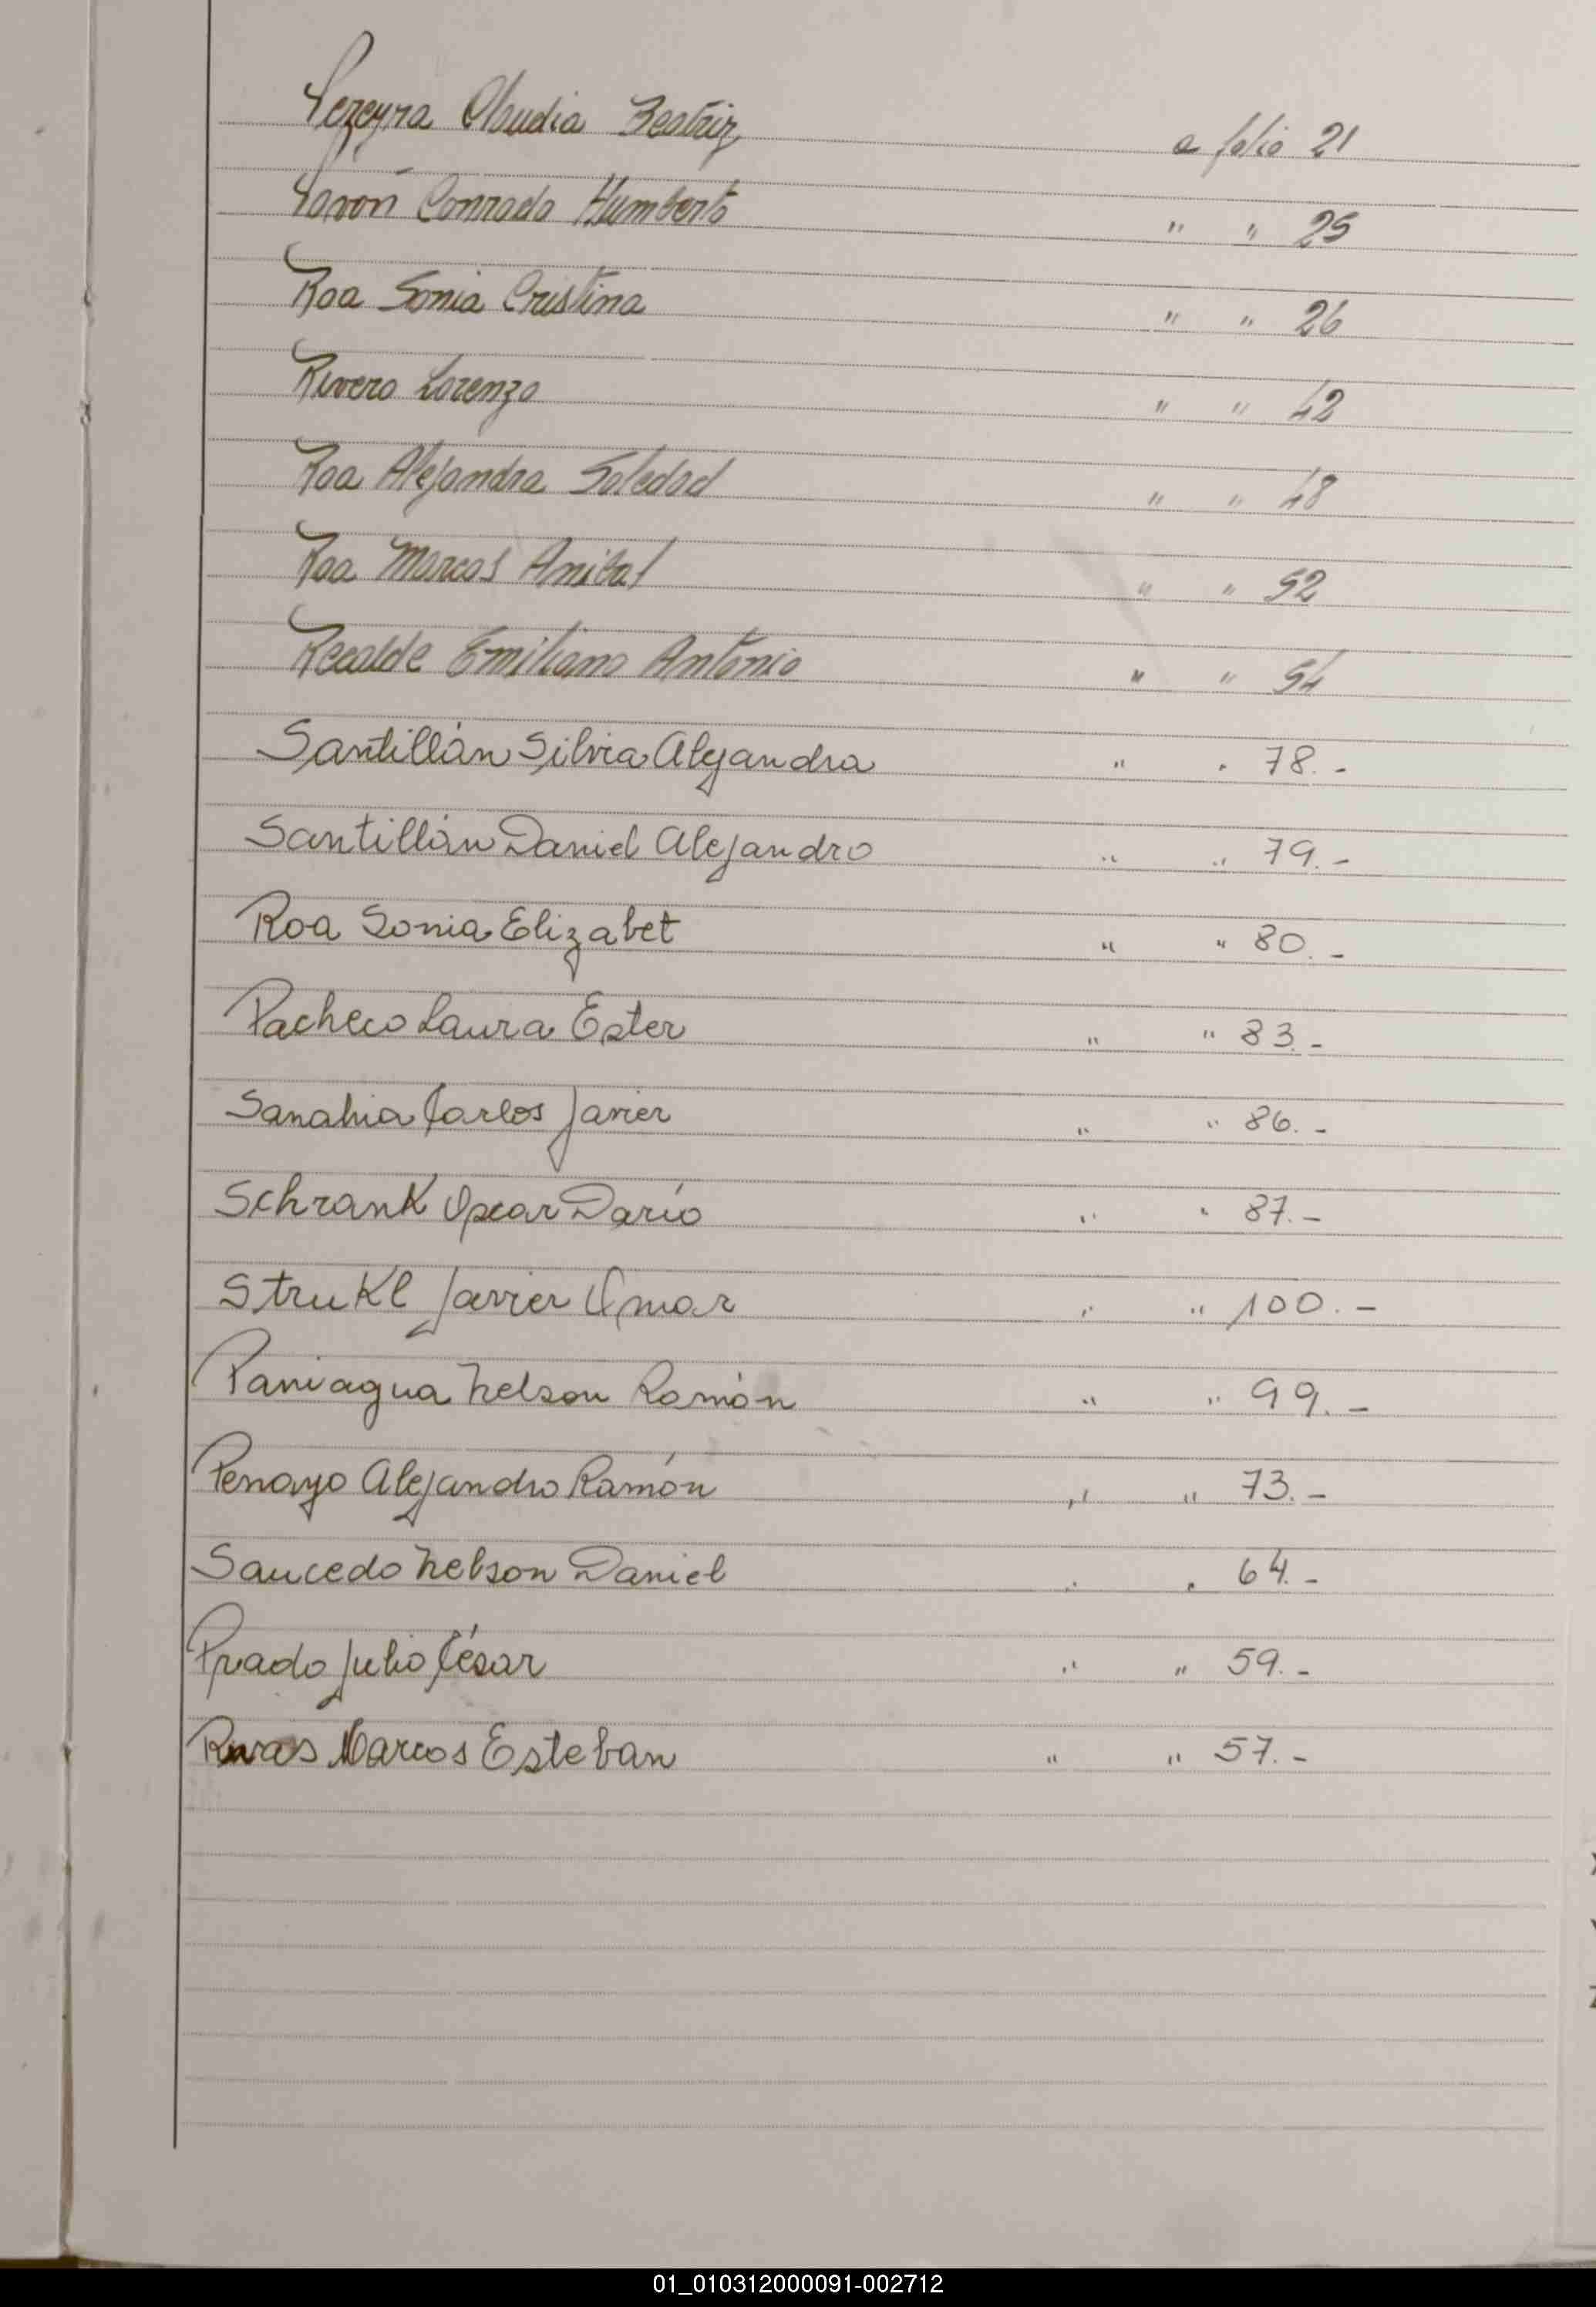 Pereyra Claudia Beatriz a folio 21
Conrado Humberto " " 25
Roa Sonia Cristina " " 26
Rivero Lorenzo " " 42
Roa Alejandra Soledad " " 48
Roa Marcos Anibal " " 52
Recalde Emiliano Antonio " " 54
Santillán Silvia Alejandra " " 78.-
Santillán Daniel Alejandro " " 79.-
Roa Sonia Elizabet " " 80.-
Pacheco Laura Ester " " 83.-
Sanabria Carlos Javier " " 86.-
Schrank Oscar Darío " " 87.-
Strukl Javier Omar " " 100.-
Paniagua Nelson Ramón " " 99.-
Penayo Alejandro Ramón " " 73.-
Saucedo Nelson Daniel " " 64.-
Prado Julio César " " 59.-
Rivas Marcos Esteban " " 57.-
01_010312000091-002712